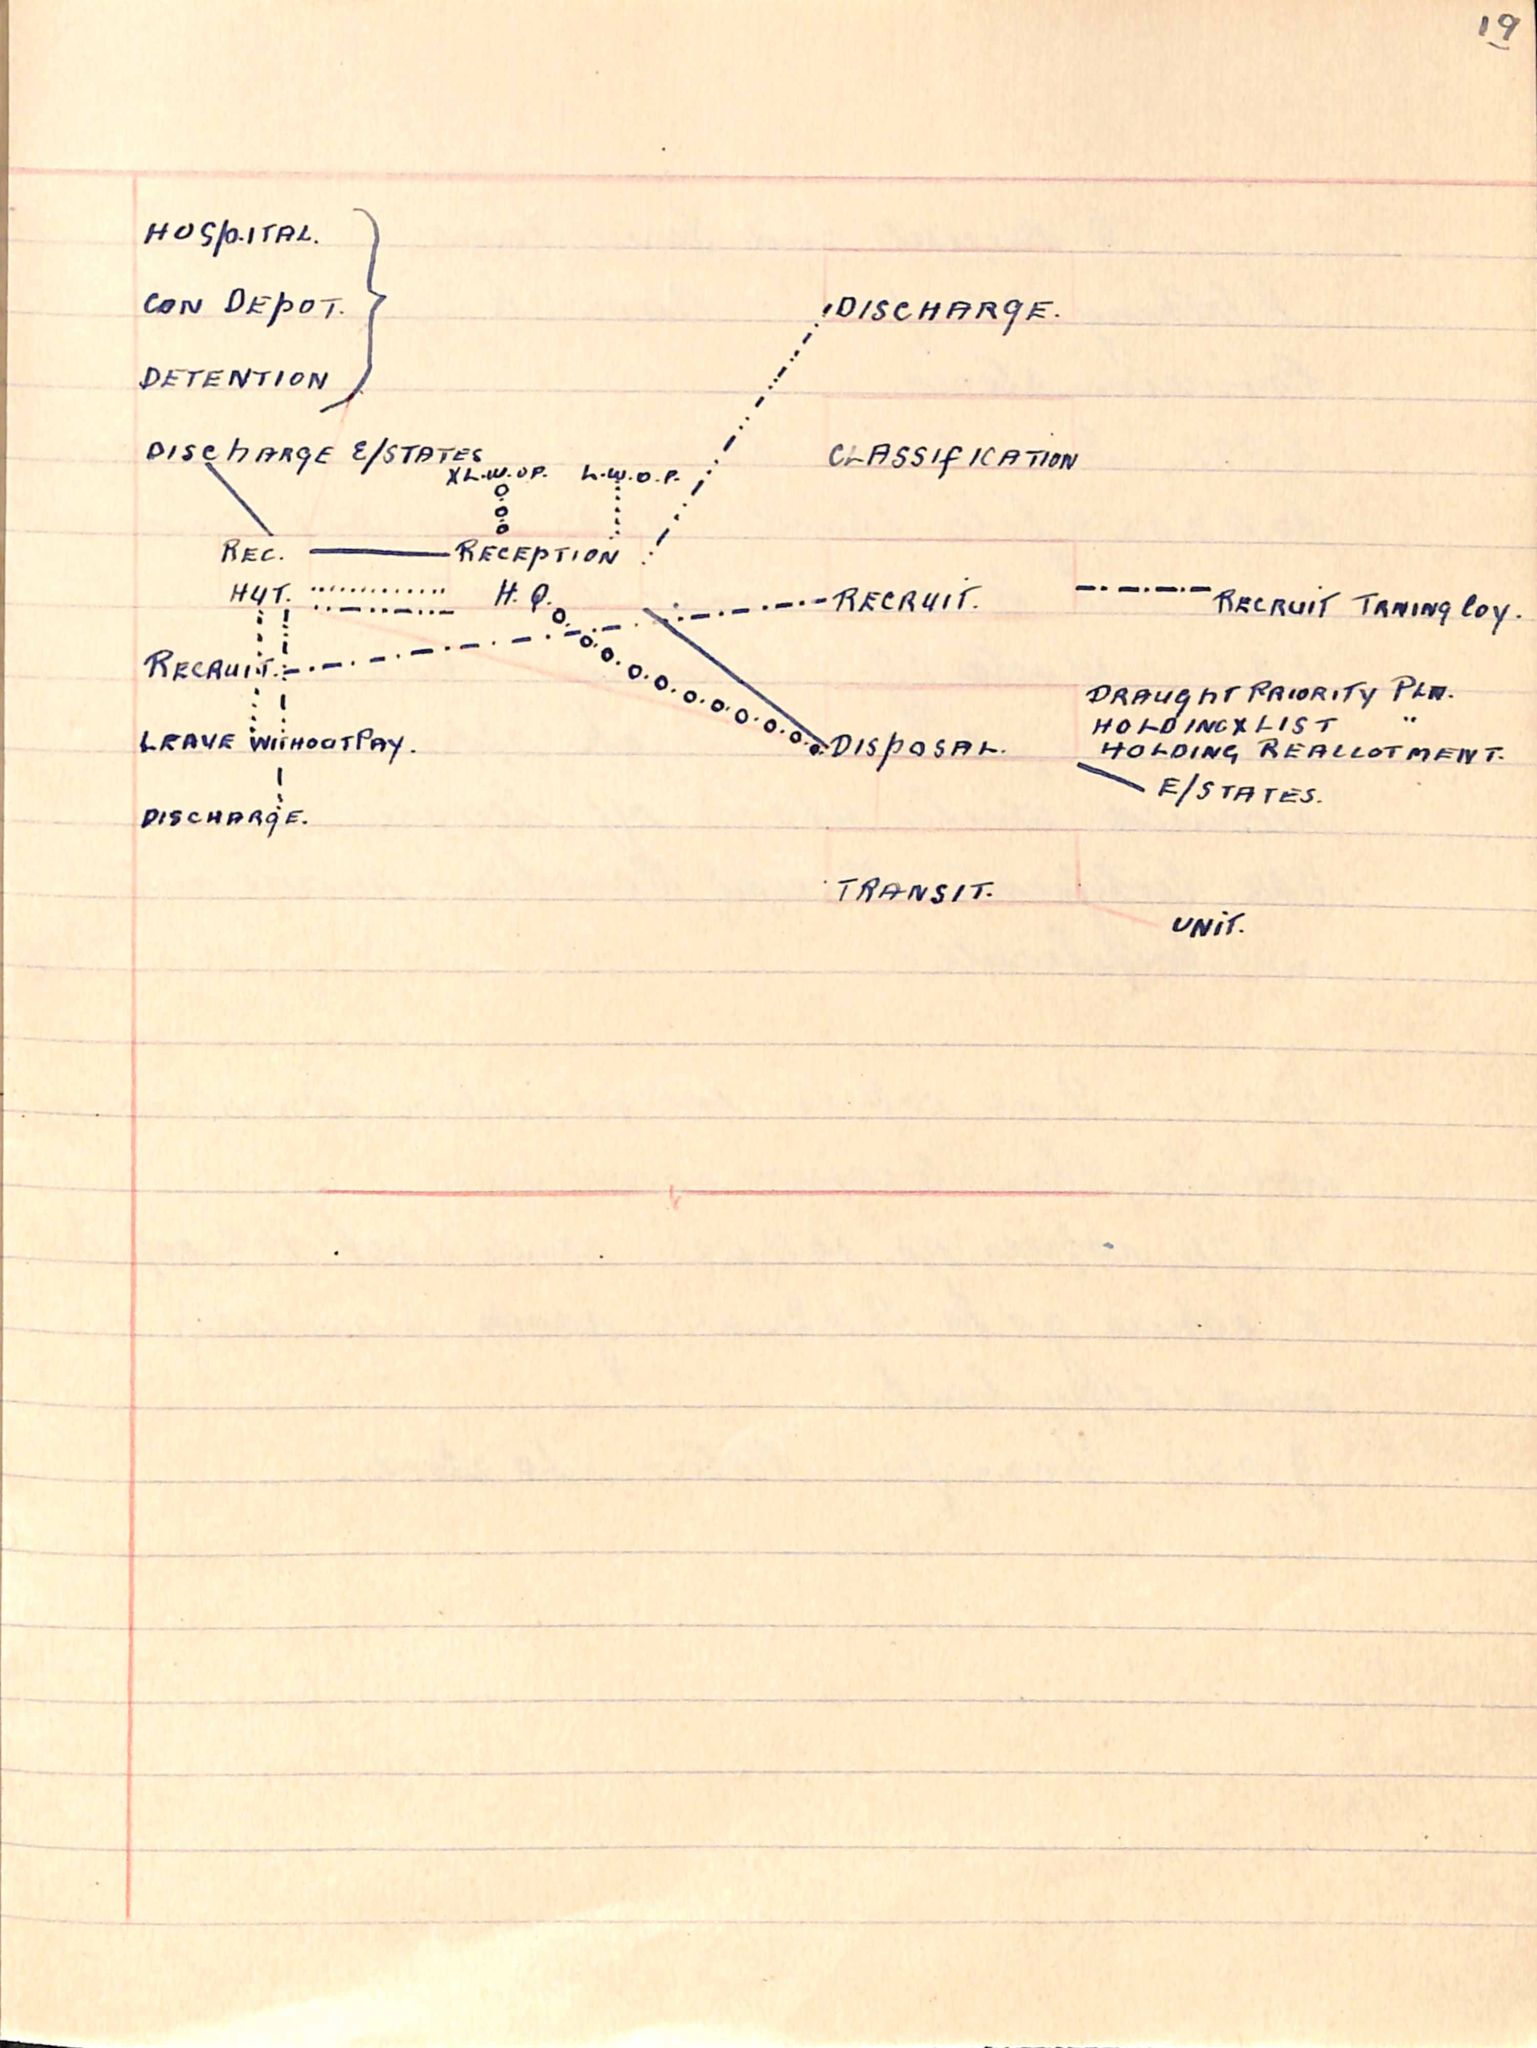 19
HOSPITAL.
CON DEPOT.
DETENTION
DISCHARGE.
DISCHARGE E/STATES
CLASSIFICATION
X L.W.O.P. L.W.O.P.
REC. RECEPTION
HUT. H.Q. RECRUIT. RECRUIT TRNING COY.
RECRUIT.
DRAUGHT PRIORITY PLN.
HOLDING X LIST "
LEAVE WITHOUT PAY. DISPOSAL. HOLDING REALLOTMENT.
E/STATES.
DISCHARGE.
TRANSIT.
UNIT.